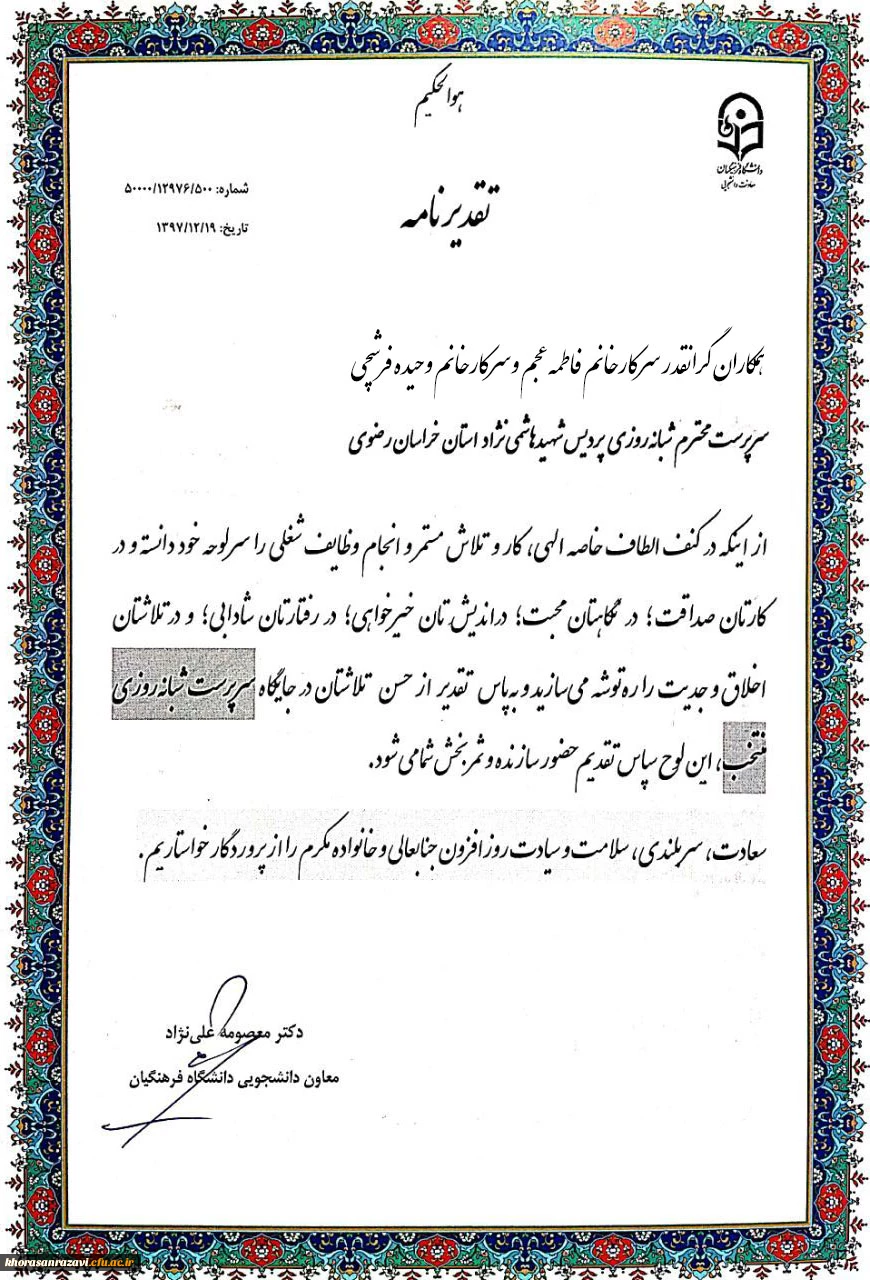 هوالحکیم
دانشگاه فرهنگیان
معاونت دانشجویی
شماره: ۵۰۰۰۰/۱۲۹۷۶/۵۰۰
تاریخ: ۱۳۹۷/۱۲/۱۹
تقدیرنامه
همکاران گرانقدر سرکارخانم فاطمه عجم و سرکارخانم وحیده فرشچی
سرپرست محترم شبانه روزی پردیس شهید هاشمی نژاد استان خراسان رضوی
از اینکه در کنف الطاف خاصه الهی، کار و تلاش مستمر و انجام وظایف شغلی را سرلوحه خود دانسته و در
کارتان صداقت؛ در نگاهتان محبت؛ در اندیش تان خیرخواهی؛ در رفتارتان شادابی؛ و در تلاشتان
اخلاق و جدیت را ره توشه می سازید و به پاس تقدیر از حسن تلاشتان در جایگاه سرپرست شبانه روزی
منتخب، این لوح سپاس تقدیم حضور سازنده و ثمربخش شما می شود.
سعادت، سربلندی، سلامت و سیادت روز افزون جنابعالی و خانواده مکرم را از پروردگار خواستاریم.
دکتر معصومه علی نژاد
معاون دانشجویی دانشگاه فرهنگیان
khorasanrazavi.cfu.ac.ir